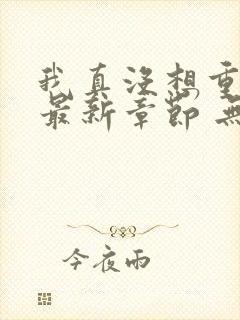 我真没想重
最新章節 無
今夜雨